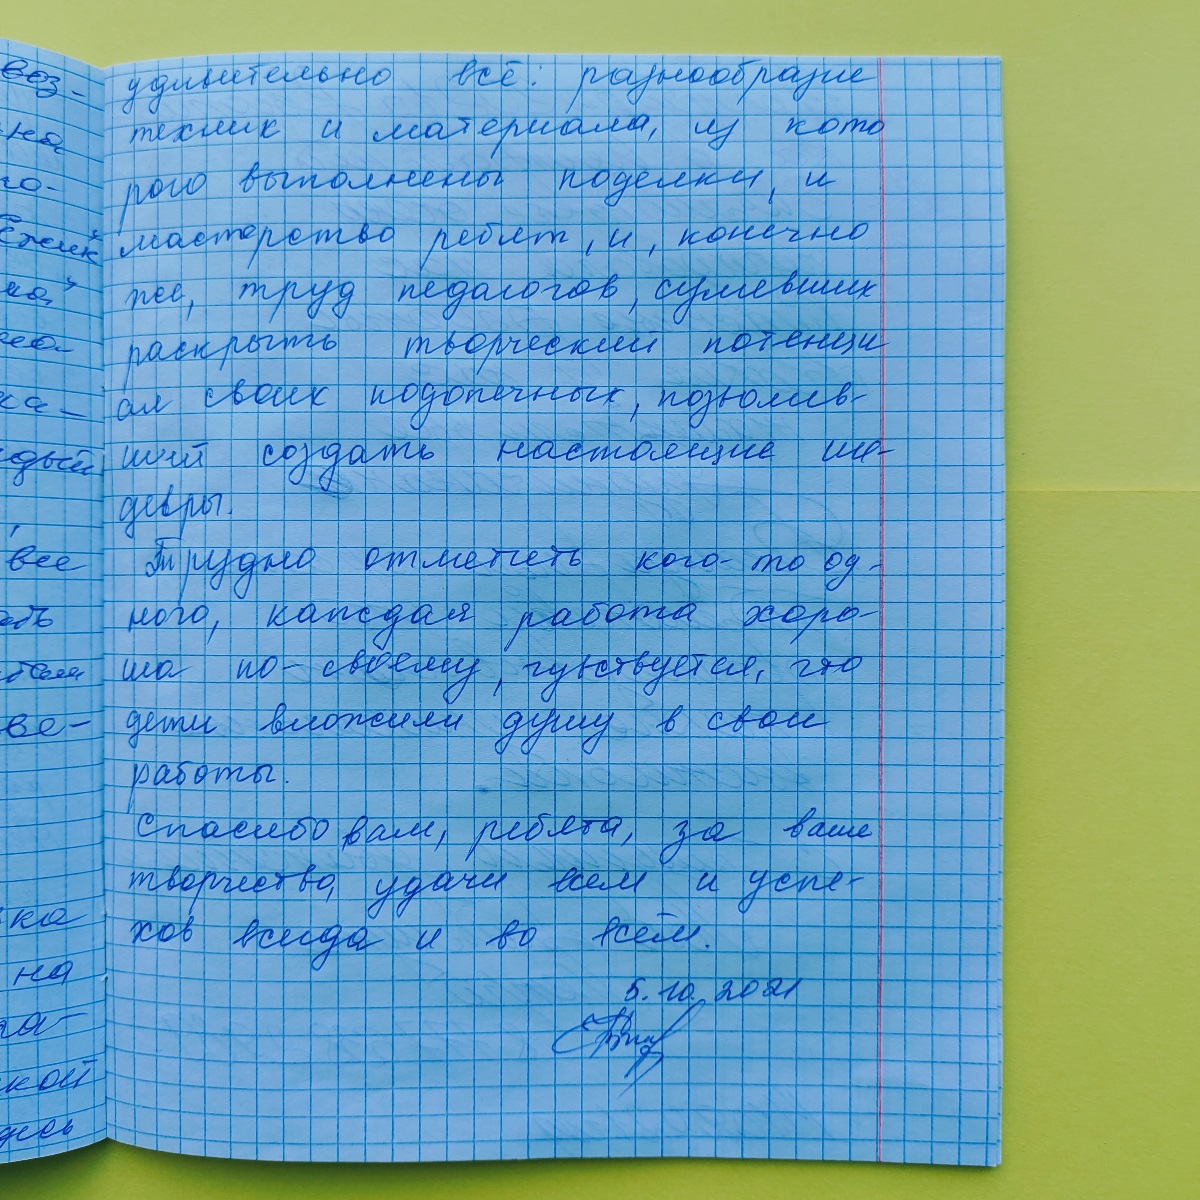 удивительно всё: разнообразие
техник и материала, из кото
рого выполнены поделки, и
мастерство ребят, и, конечно
же, труд педагогов, сумевших
раскрыть творческий потенци
ал своих подопечных, позволив-
ший создать настоящие ше-
девры.
Трудно отметить кого-то од-
ного, каждая работа хоро-
ша по-своему, чувствуется, что
дети вложили душу в свои
работы.
Спасибо вам, ребята, за ваше
творчество, удачи всем и успе-
хов всегда и во всём.
5.10.2021
воз-
на
го-
ка-
все
ве-
на
кой